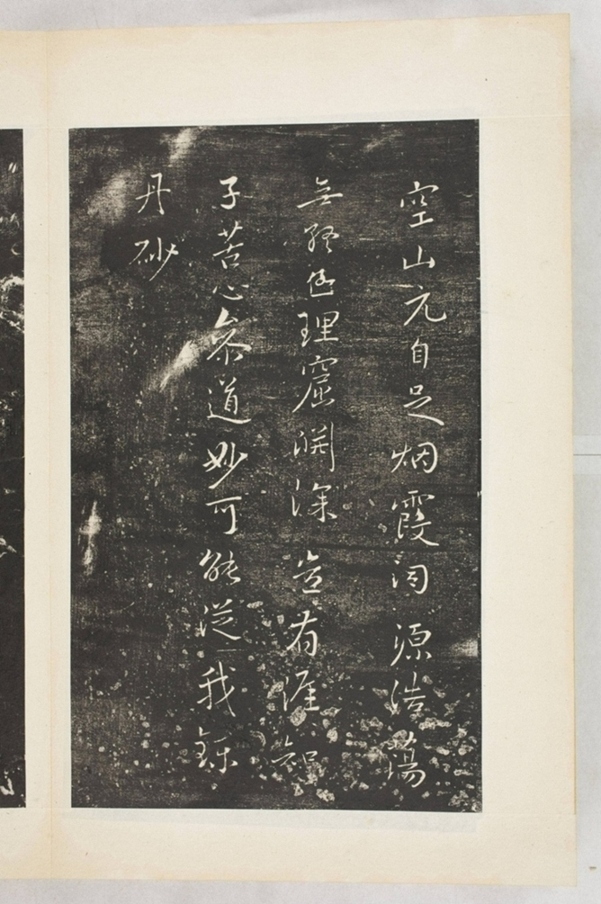 空山元自足烟霞詞源浩蕩
無理窟淵深豈有涯知
子苦心參道妙可能從我鍊
丹砂